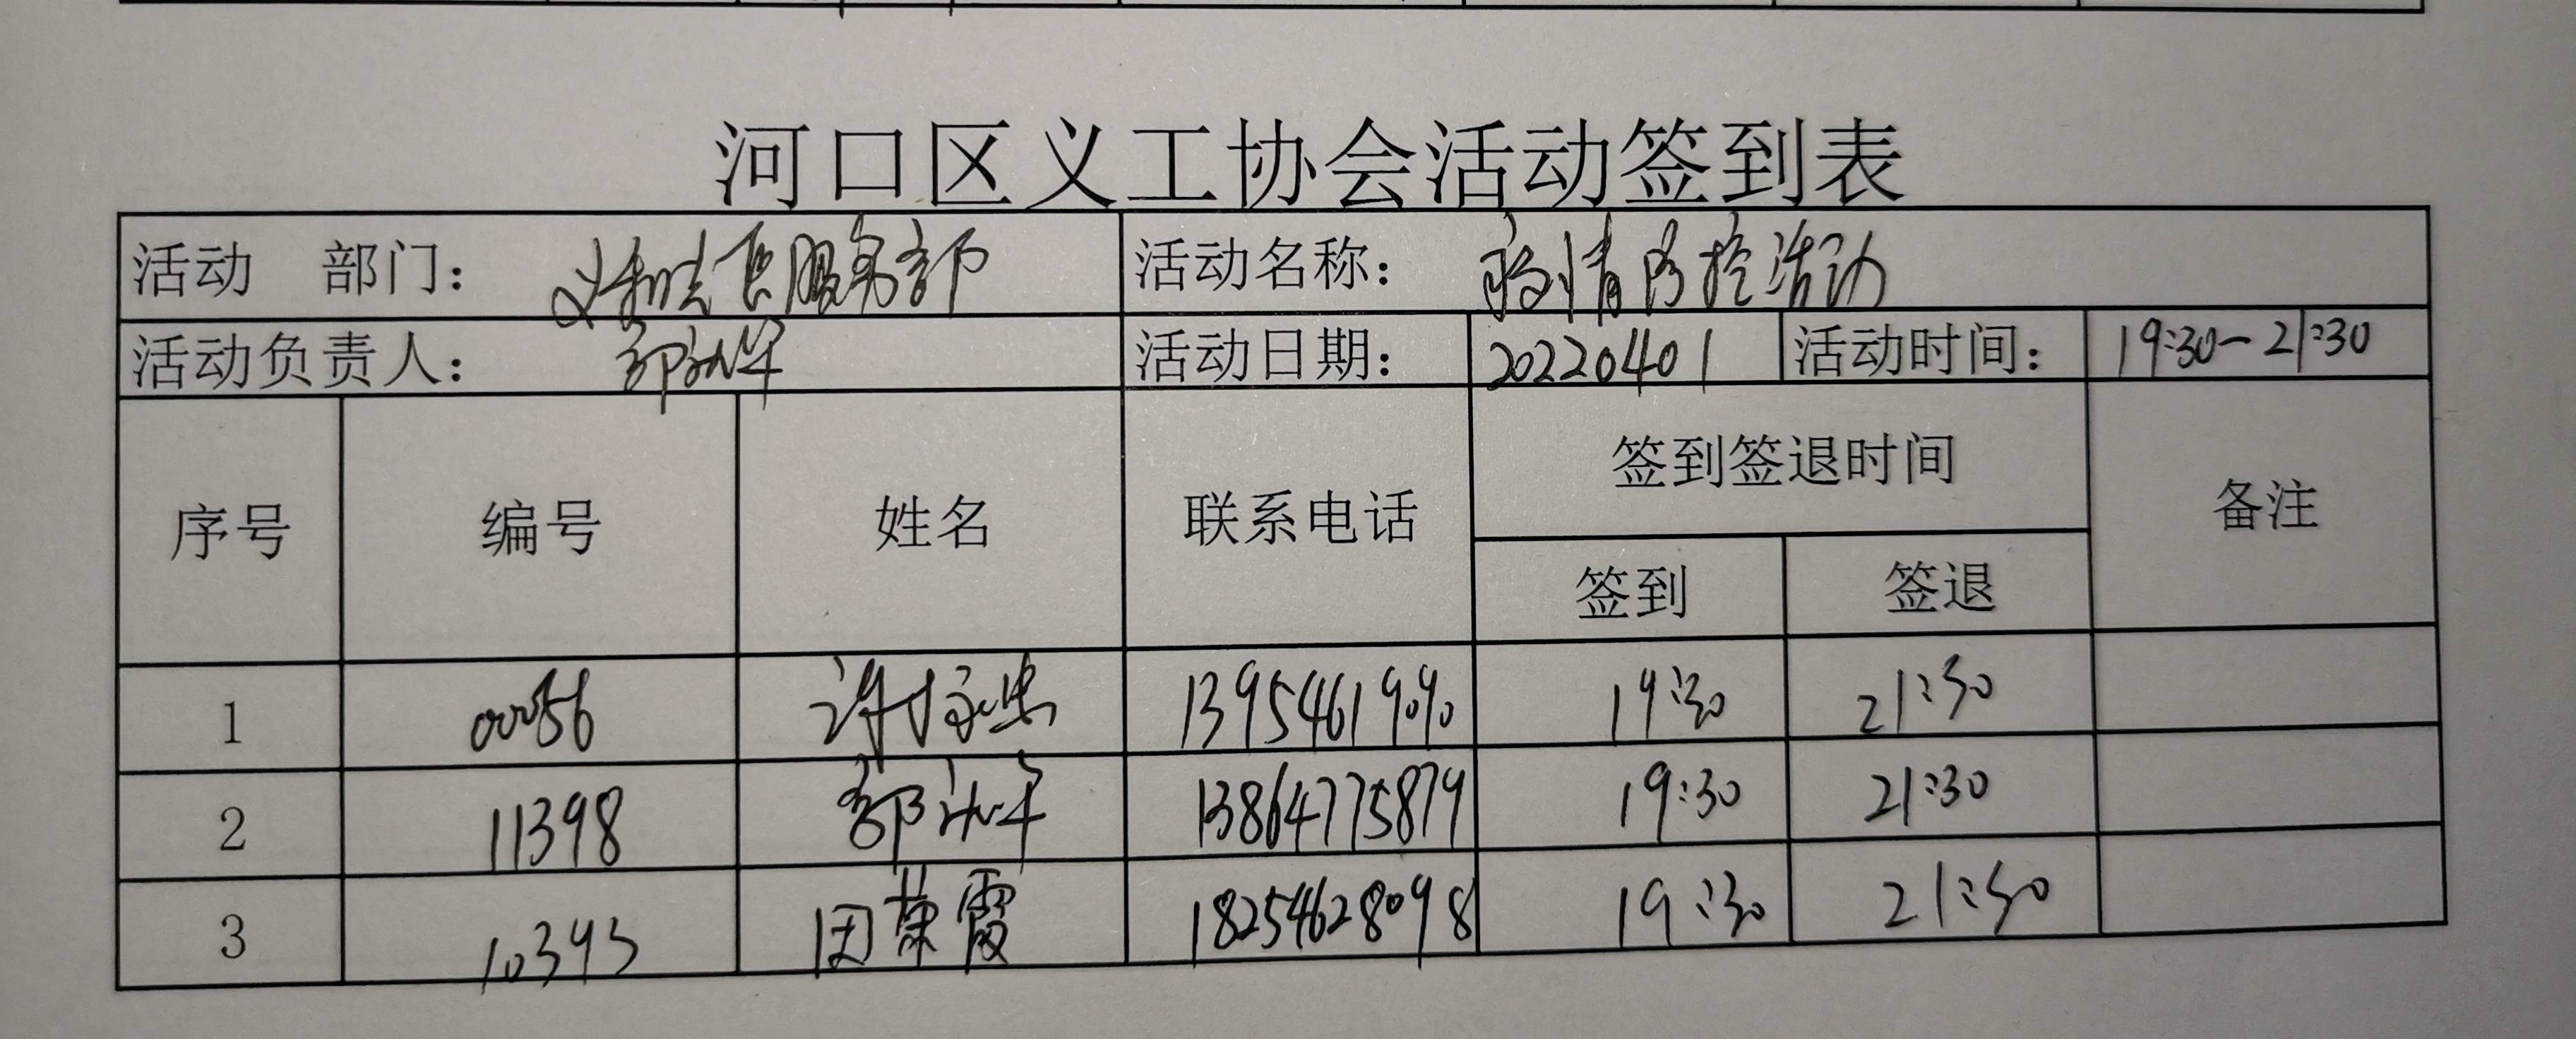 河口区义工协会活动签到表
活动 部门： 义和社区服务部 活动名称： 疫情防控活动
活动负责人： 活动日期： 20220401 活动时间： 19:30-21:30
序号 编号 姓名 联系电话 签到签退时间 备注
签到 签退
1 00056 许 忠 13954619090 19:30 21:30
2 11398 13864775879 19:30 21:30
3 10393 田 霞 18254628098 19:30 21:30